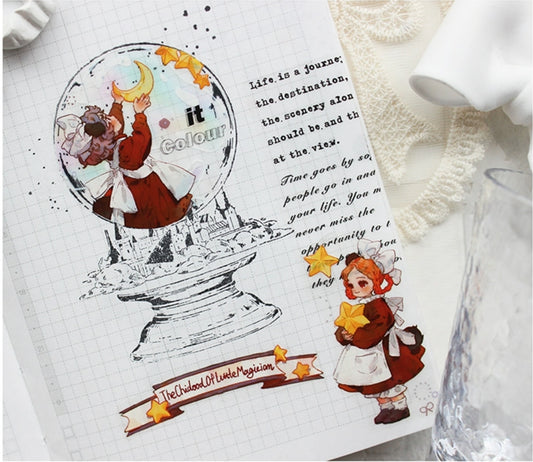 it
Colour
Life is a journey
the destination,
the scenery alon
should be and th
at the view.
Time goes by so,
people go in and
your life. You m
never miss the
opportunity to t
you
they
TheChidoodOfLittleMagician